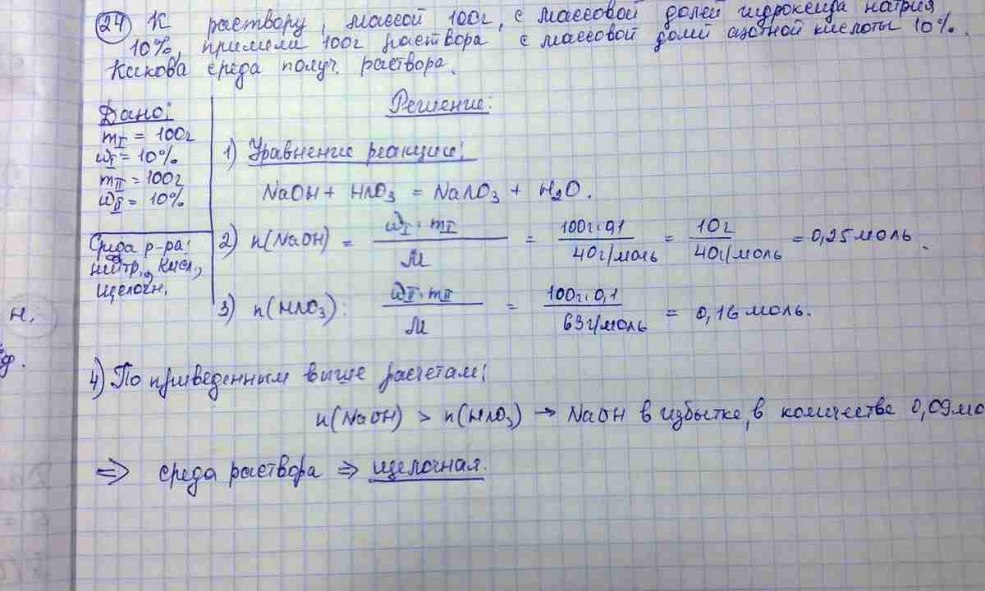 24) К раствору, массой 100г, с массовой долей гидроксида натрия
10%, прилили 100г раствора, с массовой долей азотной кислоты 10%.
Какова среда получ. раствора.
Дано:
m_I = 100г
ω_I = 10%
m_II = 100г
ω_II = 10%
Среда р-ра:
нейтр., кисл.,
щелочн.
Решение:
1) Уравнение реакции:
NaOH + HNO₃ = NaNO₃ + H₂O.
2) n(NaOH) = ω_I · m_I / M = 100г · 0,1 / 40г/моль = 10г / 40г/моль = 0,25 моль.
3) n(HNO₃): ω_II · m_II / M = 100г · 0,1 / 63г/моль = 0,16 моль.
н.
4) По приведенным выше расчетам:
n(NaOH) > n(HNO₃) → NaOH в избытке, в количестве 0,09 мо
⇒ среда раствора ⇒ щелочная.